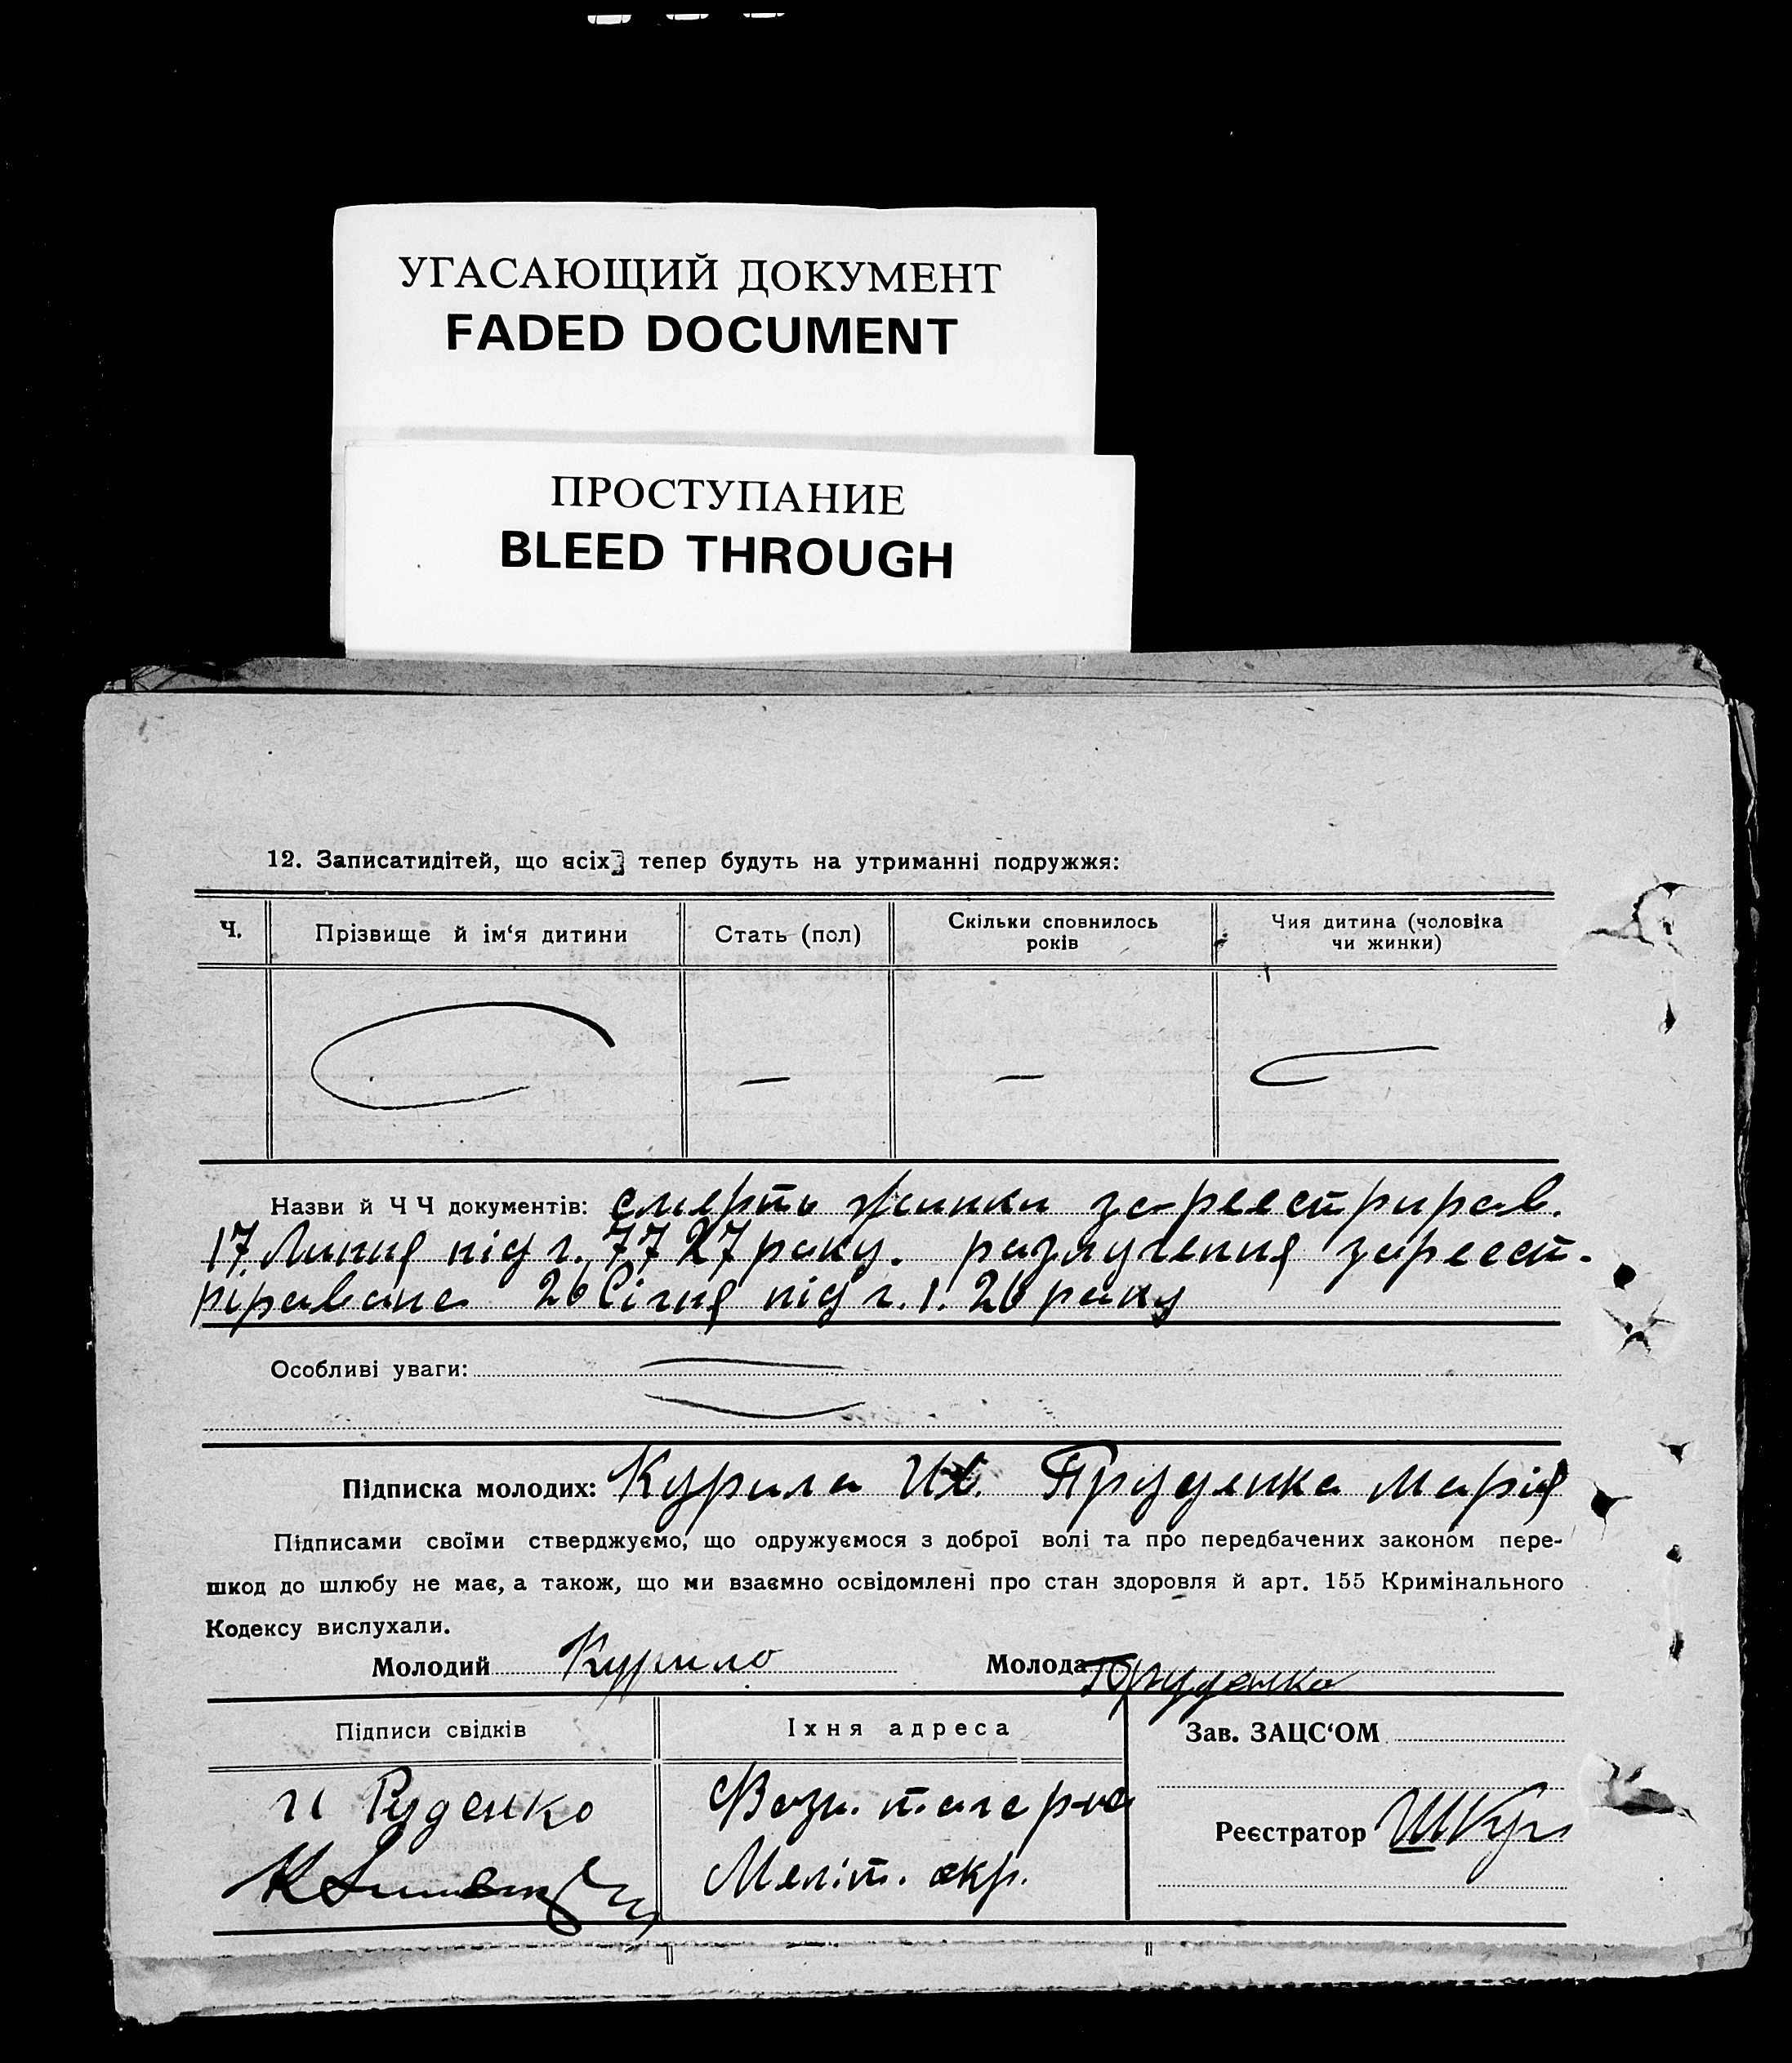 УГАСАЮЩИЙ ДОКУМЕНТ
FADED DOCUMENT
ПРОСТУПАНИЕ
BLEED THROUGH
12. Записатидітей, що всіх тепер будуть на утриманні подружжя:
Ч.
Прізвище й ім‘я дитини
Стать (пол)
Скільки сповнилось
років
Чия дитина (чоловіка
чи жинки)
Назви й Ч Ч документів: смерть жинки зареестрирав.
17 Липня під ч. 77 27 року. разлучення зареест-
рировано 26 Січня під ч. 1. 26 року
Особливі уваги:
Підписка молодих: Курила Ив. Пруденка Марія
Підписами своїми стверджуємо, що одружуємося з доброї волі та про передбачених законом пере-
шкод до шлюбу не має, а також, що ми взаємно освідомлені про стан здоровля й арт. 155 Кримінального
Кодексу вислухали.
Молодий Курило Молода Пруденко
Підписи свідків
Іхня адреса
Зав. ЗАЦС‘ОМ
И Руденко
Возн.
Реєстратор
Меліт. окр.